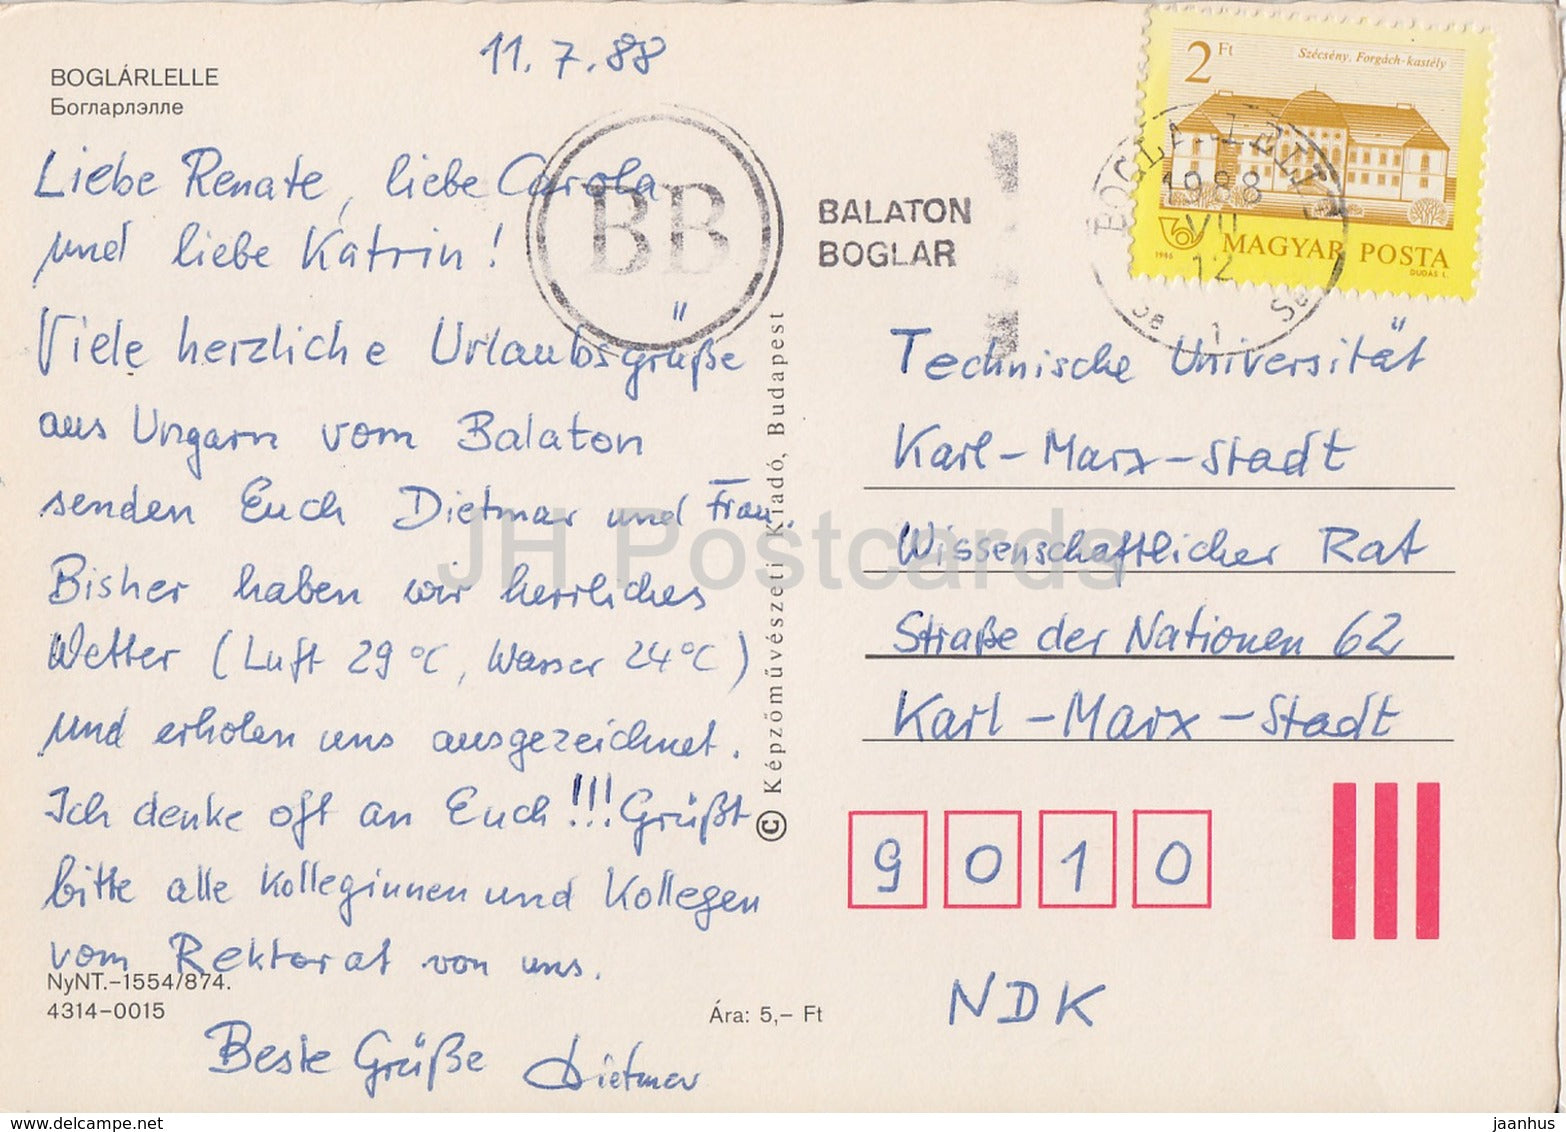 BOGLÁRLELLE
Богларлэлле
11.7.88
Liebe Renate, liebe Carola
und liebe Katrin!
Viele herzliche Urlaubsgrüße
aus Ungarn vom Balaton
senden Euch Dietmar und Frau.
Bisher haben wir herrliches
Wetter (Luft 29°C, Wasser 24°C)
und erholen uns ausgezeichnet.
Ich denke oft an Euch!!! Grüßt
bitte alle Kolleginnen und Kollegen
vom Rektorat von uns.
Beste Grüße Dietmar
NyNT.-1554/874.
4314-0015
Ára: 5,- Ft
© Képzőművészeti Kiadó, Budapest
BB
BALATON
BOGLAR
2 Ft
Szécsény, Forgách-kastély
1986
MAGYAR POSTA
DUDÁS L.
1988
VII
12
1
Technische Universität
Karl-Marx-Stadt
Wissenschaftlicher Rat
Straße der Nationen 62
Karl-Marx-Stadt
9010
NDK
JH Postcards
www.delcampe.net
jaanhus